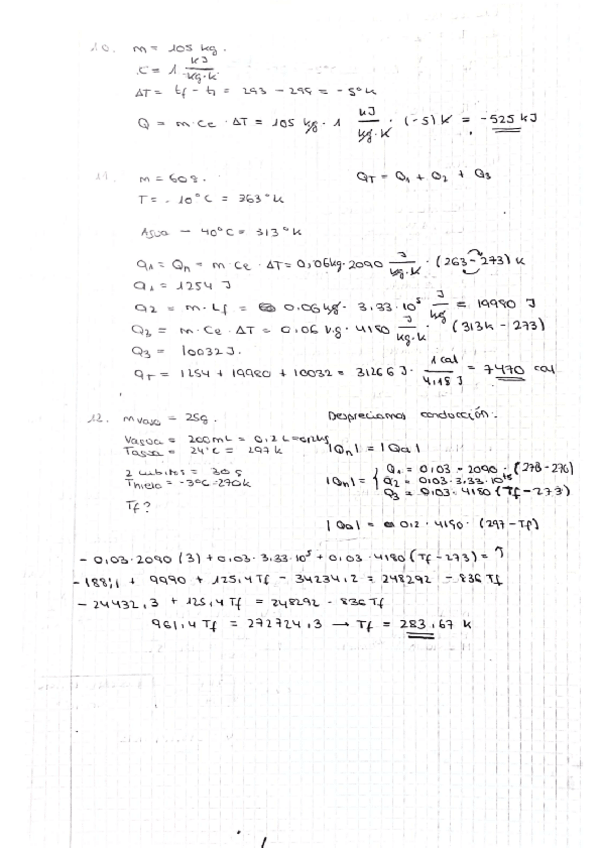 10. m = 105 kg.
C = 1 kJ/kg·k
ΔT = tf - ti = 293 - 298 = -5°k
Q = m·Ce·ΔT = 105 kg · 1 kJ/kg·K · (-5) K = -525 kJ
11. m = 60g. QT = Q1 + Q2 + Q3
T = -10°C = 363°k
Agua - 40°C = 313°k
Q1 = Qn = m·Ce·ΔT = 0,06kg·2090 J/kg·k · (263-273) k
Q1 = 1254 J
Q2 = m·Lf = 0.06kg · 3.33·10⁵ J/kg = 19980 J
Q3 = m·Ce·ΔT = 0.06 kg · 4180 J/kg·k · (313k - 273)
Q3 = 10032 J.
QT = 1254 + 19980 + 10032 = 31266 J · 1 cal/4,18 J = 7470 cal
12. m vaso = 25g. Despreciamos conducción.
Vagua = 200mL = 0,2 L = 0,2kg
Tagua = 24°C = 297k |Qn| = |Qa|
2 cubitos = 30g
Thielo = -3°C = 270k |Qn| = { Q1 = 0,03 · 2090 · (273-276)
Q2 = 0,03 · 3.33·10⁵
Q3 = 0,03 · 4180 (Tf - 273)
Tf?
|Qa| = 0,2 · 4180 · (297 - Tf)
- 0,03·2090 (3) + 0,03·3,33·10⁵ + 0,03·4180 (Tf - 273) =
- 188,1 + 9990 + 125,4 Tf - 34234,2 = 248292 - 836 Tf
- 24432,3 + 125,4 Tf = 248292 - 836 Tf
961,4 Tf = 272724,3 → Tf = 283,67 k